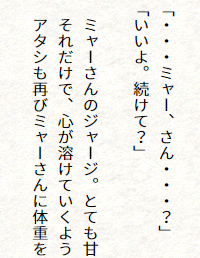 「・・・ミャー、さん・・・？」
「いいよ。続けて？」
ミャーさんのジャージ。とても甘
それだけで、心が溶けていくよう
アタシも再びミャーさんに体重を